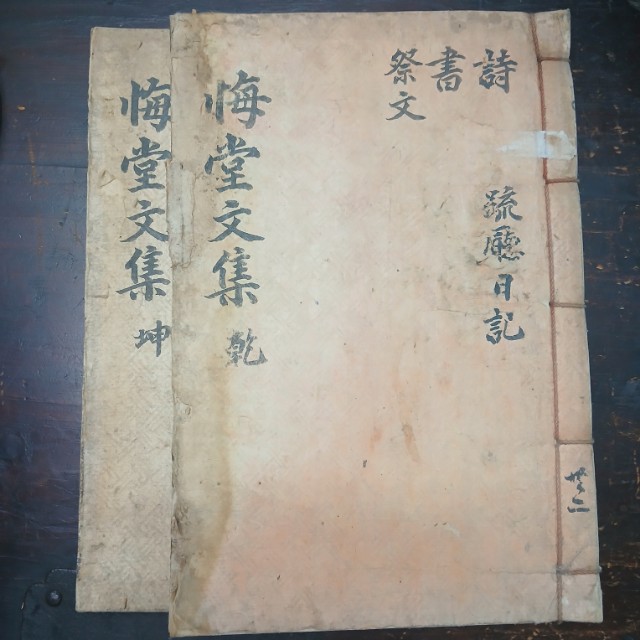 詩
疏廳日記
書
祭文
悔堂文集
乾
悔堂文集
坤